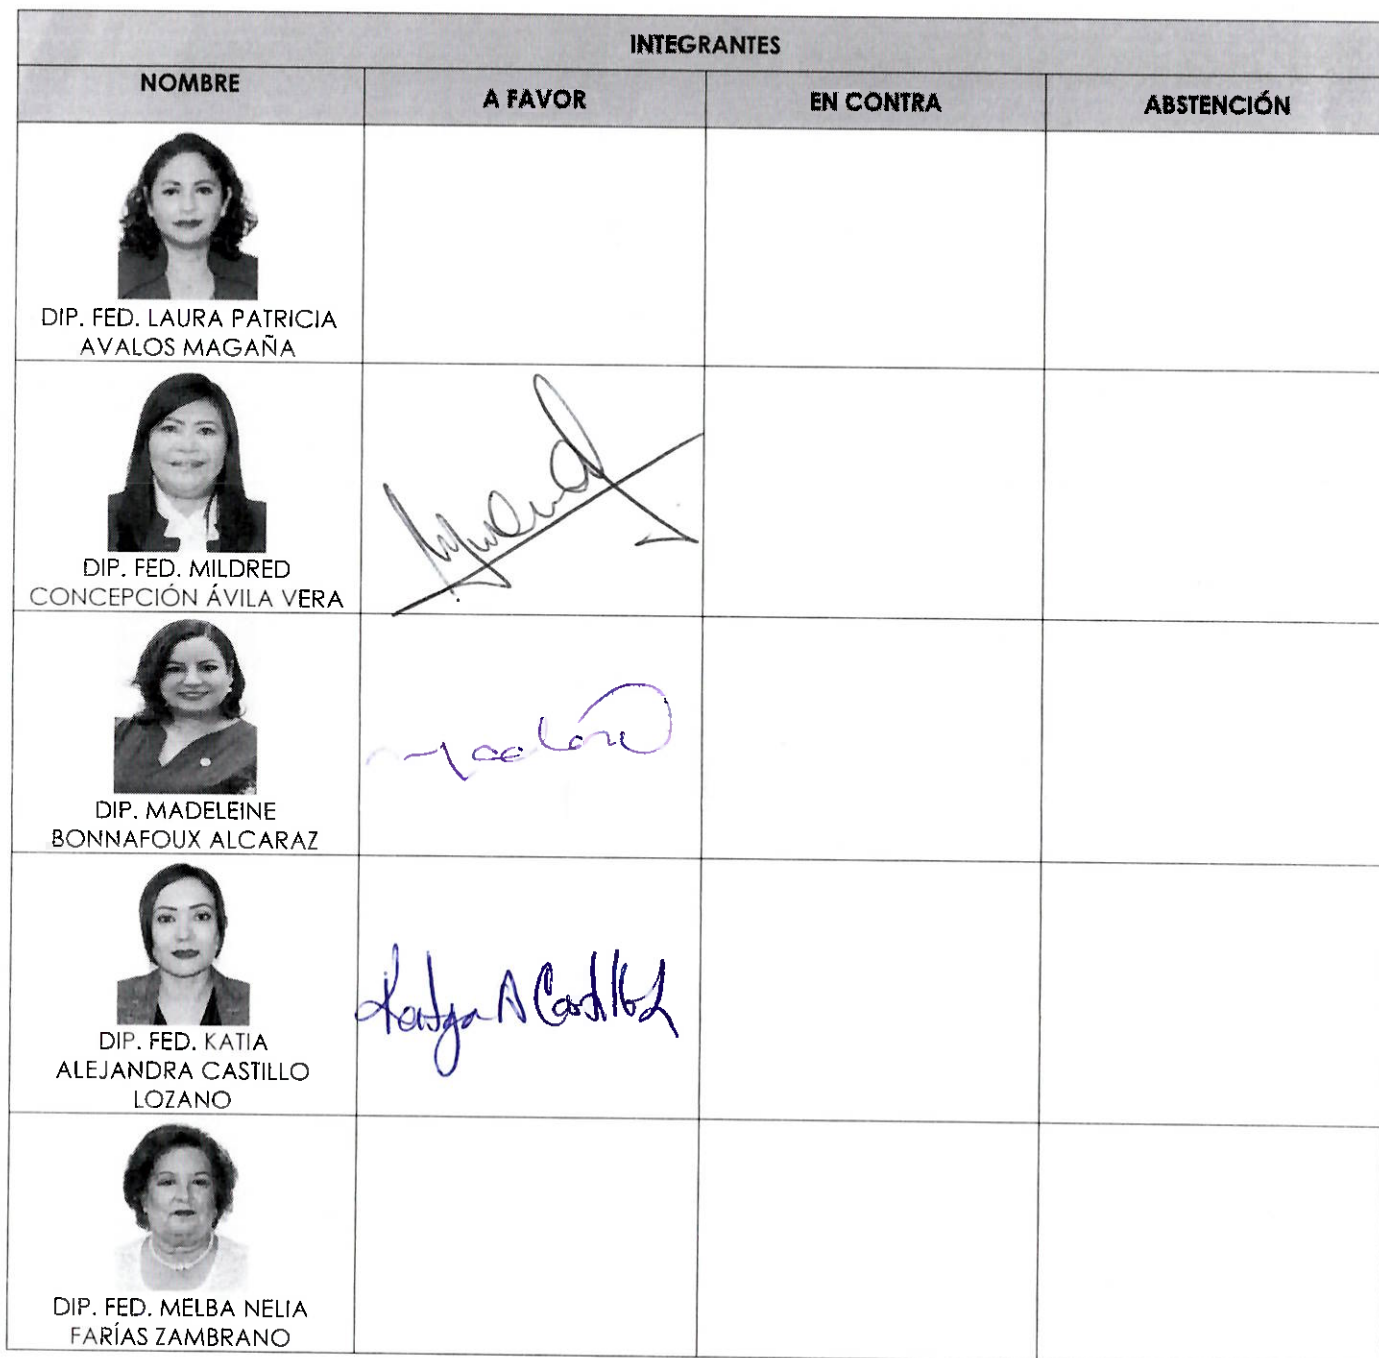 INTEGRANTES
NOMBRE
A FAVOR
EN CONTRA
ABSTENCIÓN
DIP. FED. LAURA PATRICIA
AVALOS MAGAÑA
DIP. FED. MILDRED
CONCEPCIÓN ÁVILA VERA
DIP. MADELEINE
BONNAFOUX ALCARAZ
DIP. FED. KATIA
ALEJANDRA CASTILLO
LOZANO
Katya A Castillo L
DIP. FED. MELBA NELIA
FARÍAS ZAMBRANO